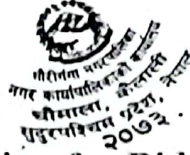 गौरीगंगा नगरपालिका
नगर कार्यापालिकाको कार्यालय
चौमाला, कैलाली
सुदुरपश्चिम प्रदेश, नेपाल
२०७३